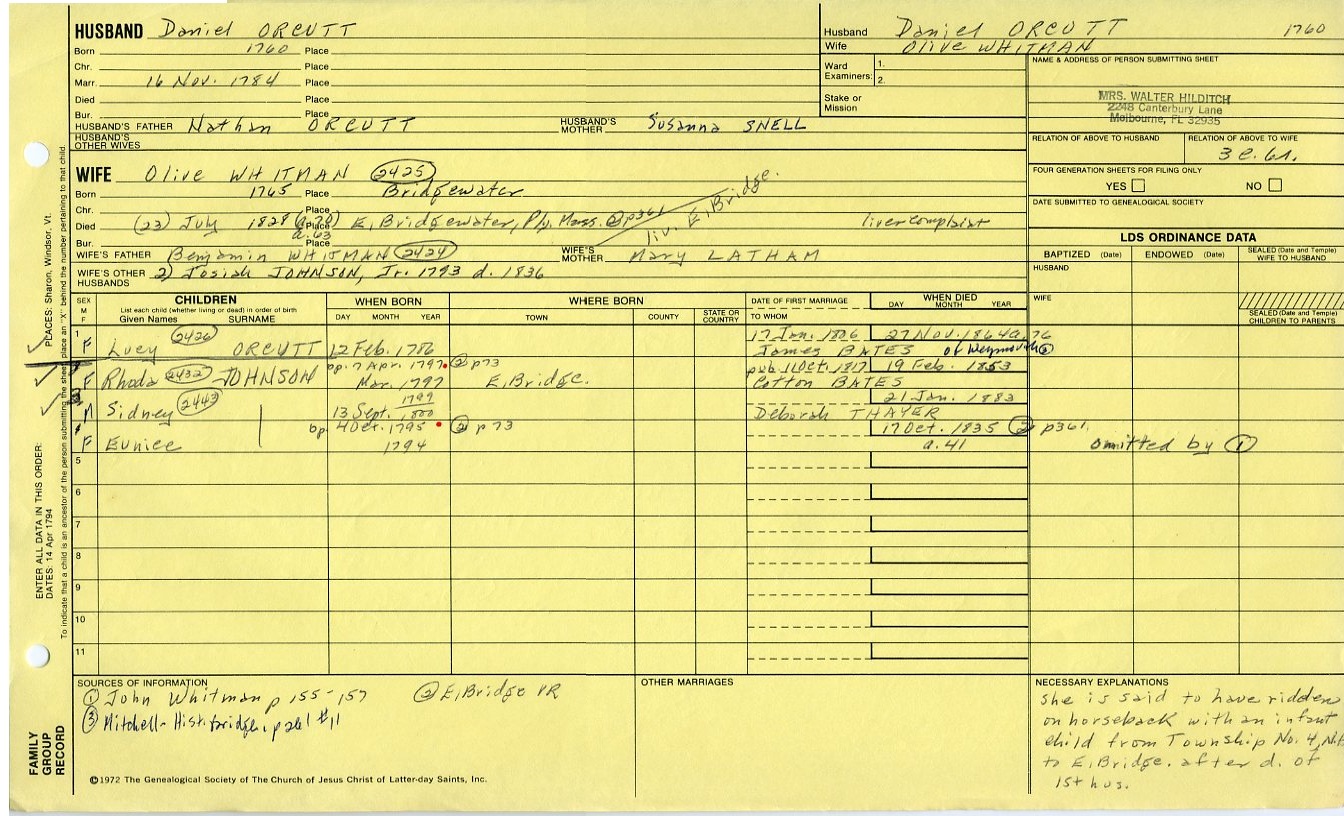 HUSBAND Daniel ORCUTT
Born 1760 Place
Chr. Place
Marr. 16 Nov. 1784 Place
Died Place
Bur. Place
HUSBAND'S FATHER Nathan ORCUTT HUSBAND'S MOTHER Susanna SNELL
HUSBAND'S OTHER WIVES
Husband Daniel ORCUTT 1760
Wife Olive WHITMAN
Ward Examiners: 1.
2.
Stake or Mission
NAME & ADDRESS OF PERSON SUBMITTING SHEET
MRS. WALTER HILDITCH
2248 Canterbury Lane
Melbourne, FL 32935
RELATION OF ABOVE TO HUSBAND RELATION OF ABOVE TO WIFE
3 c. 6r.
FOUR GENERATION SHEETS FOR FILING ONLY
YES NO
DATE SUBMITTED TO GENEALOGICAL SOCIETY
WIFE Olive WHITMAN 2425
Born 1765 Place Bridgewater
Chr. Place
Died (23) July 1828 (a. 70) Place E. Bridgewater, Ply. Mass. ② p361 liv. E. Bridge. liver complaint
Bur. a. 63 Place
WIFE'S FATHER Benjamin WHITMAN 2424 WIFE'S MOTHER Mary LATHAM
WIFE'S OTHER HUSBANDS 2) Josiah JOHNSON, Jr. 1793 d. 1836
LDS ORDINANCE DATA
BAPTIZED (Date) ENDOWED (Date) SEALED (Date and Temple) WIFE TO HUSBAND
HUSBAND
WIFE
SEALED (Date and Temple) CHILDREN TO PARENTS
SEX M F
CHILDREN
List each child (whether living or dead) in order of birth
Given Names SURNAME
WHEN BORN
DAY MONTH YEAR
WHERE BORN
TOWN COUNTY STATE OR COUNTRY
DATE OF FIRST MARRIAGE
TO WHOM
WHEN DIED
DAY MONTH YEAR
1 F Lucy 2426 ORCUTT 12 Feb. 1786 17 Jan. 1806 27 Nov. 1864 a. 76
James BATES of Weymouth ②
F Rhoda 2432 JOHNSON bp. 7 Apr. 1797 ② p73 pub. 11 Oct. 1817 19 Feb. 1853
Mar. 1797 E. Bridge. Cotton BATES
M Sidney 2443 13 Sept. 1799 1800 21 Jan. 1883
Deborah THAYER
F Eunice bp. 4 Oct. 1795 ② p73 17 Oct. 1835 ② p361.
1794 a. 41 omitted by ①
5
6
7
8
9
10
11
SOURCES OF INFORMATION
① John Whitman p 155-157 ② E. Bridge VR
③ Mitchell- Hist. bridge. p 261 #11
OTHER MARRIAGES
NECESSARY EXPLANATIONS
She is said to have ridden
on horseback with an infant
child from Township No. 4, N.H.
to E. Bridge. after d. of
1st hus.
©1972 The Genealogical Society of The Church of Jesus Christ of Latter-day Saints, Inc.
FAMILY GROUP RECORD
ENTER ALL DATA IN THIS ORDER:
DATES: 14 Apr 1794
PLACES: Sharon, Windsor, Vt.
To indicate that a child is an ancestor of the person submitting the sheet, place an "X" behind the number pertaining to that child.